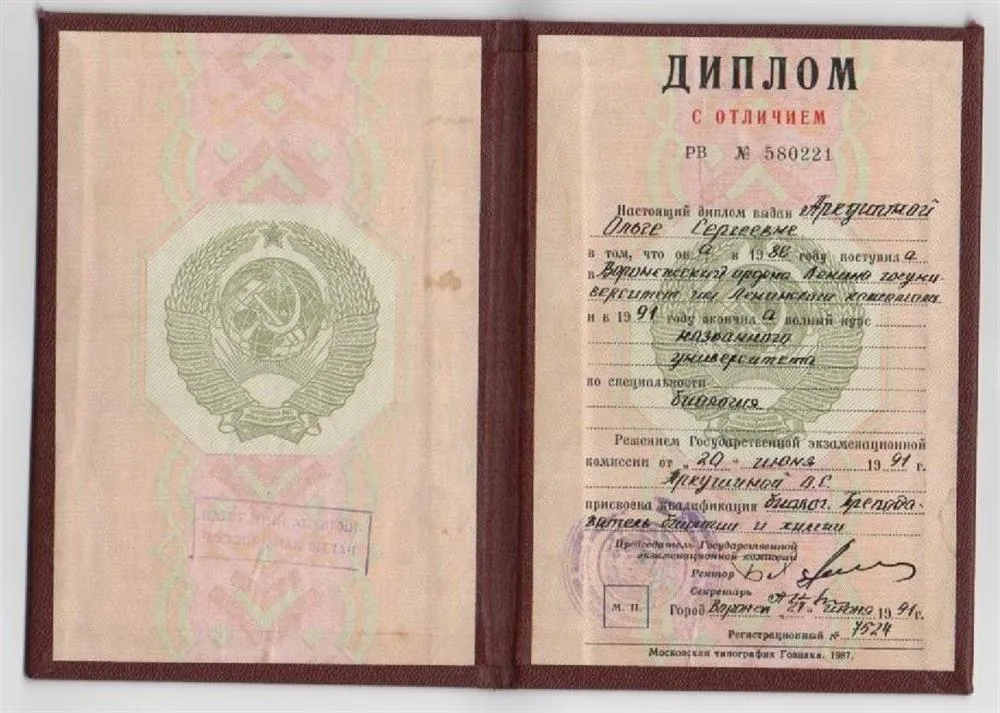 ДИПЛОМ
С ОТЛИЧИЕМ
РВ № 580221
Настоящий диплом выдан Аркушиной
Ольге Сергеевне
в том, что он а в 1986 году поступил а
в Воронежский ордена Ленина госуни-
верситет им. Ленинского комсомола
и в 1991 году окончил а полный курс
названного
университета
по специальности
биология
Решением Государственной экзаменационной
комиссии от „20“ июня 1991 г.
Аркушиной О.С.
присвоена квалификация биолог. Препода-
ватель биологии и химии
Председатель Государственной
экзаменационной комиссии
Ректор
Секретарь
М. П.
Город Воронеж июня 1991 г.
Регистрационный № 7524
Московская типография Гознака. 1987.